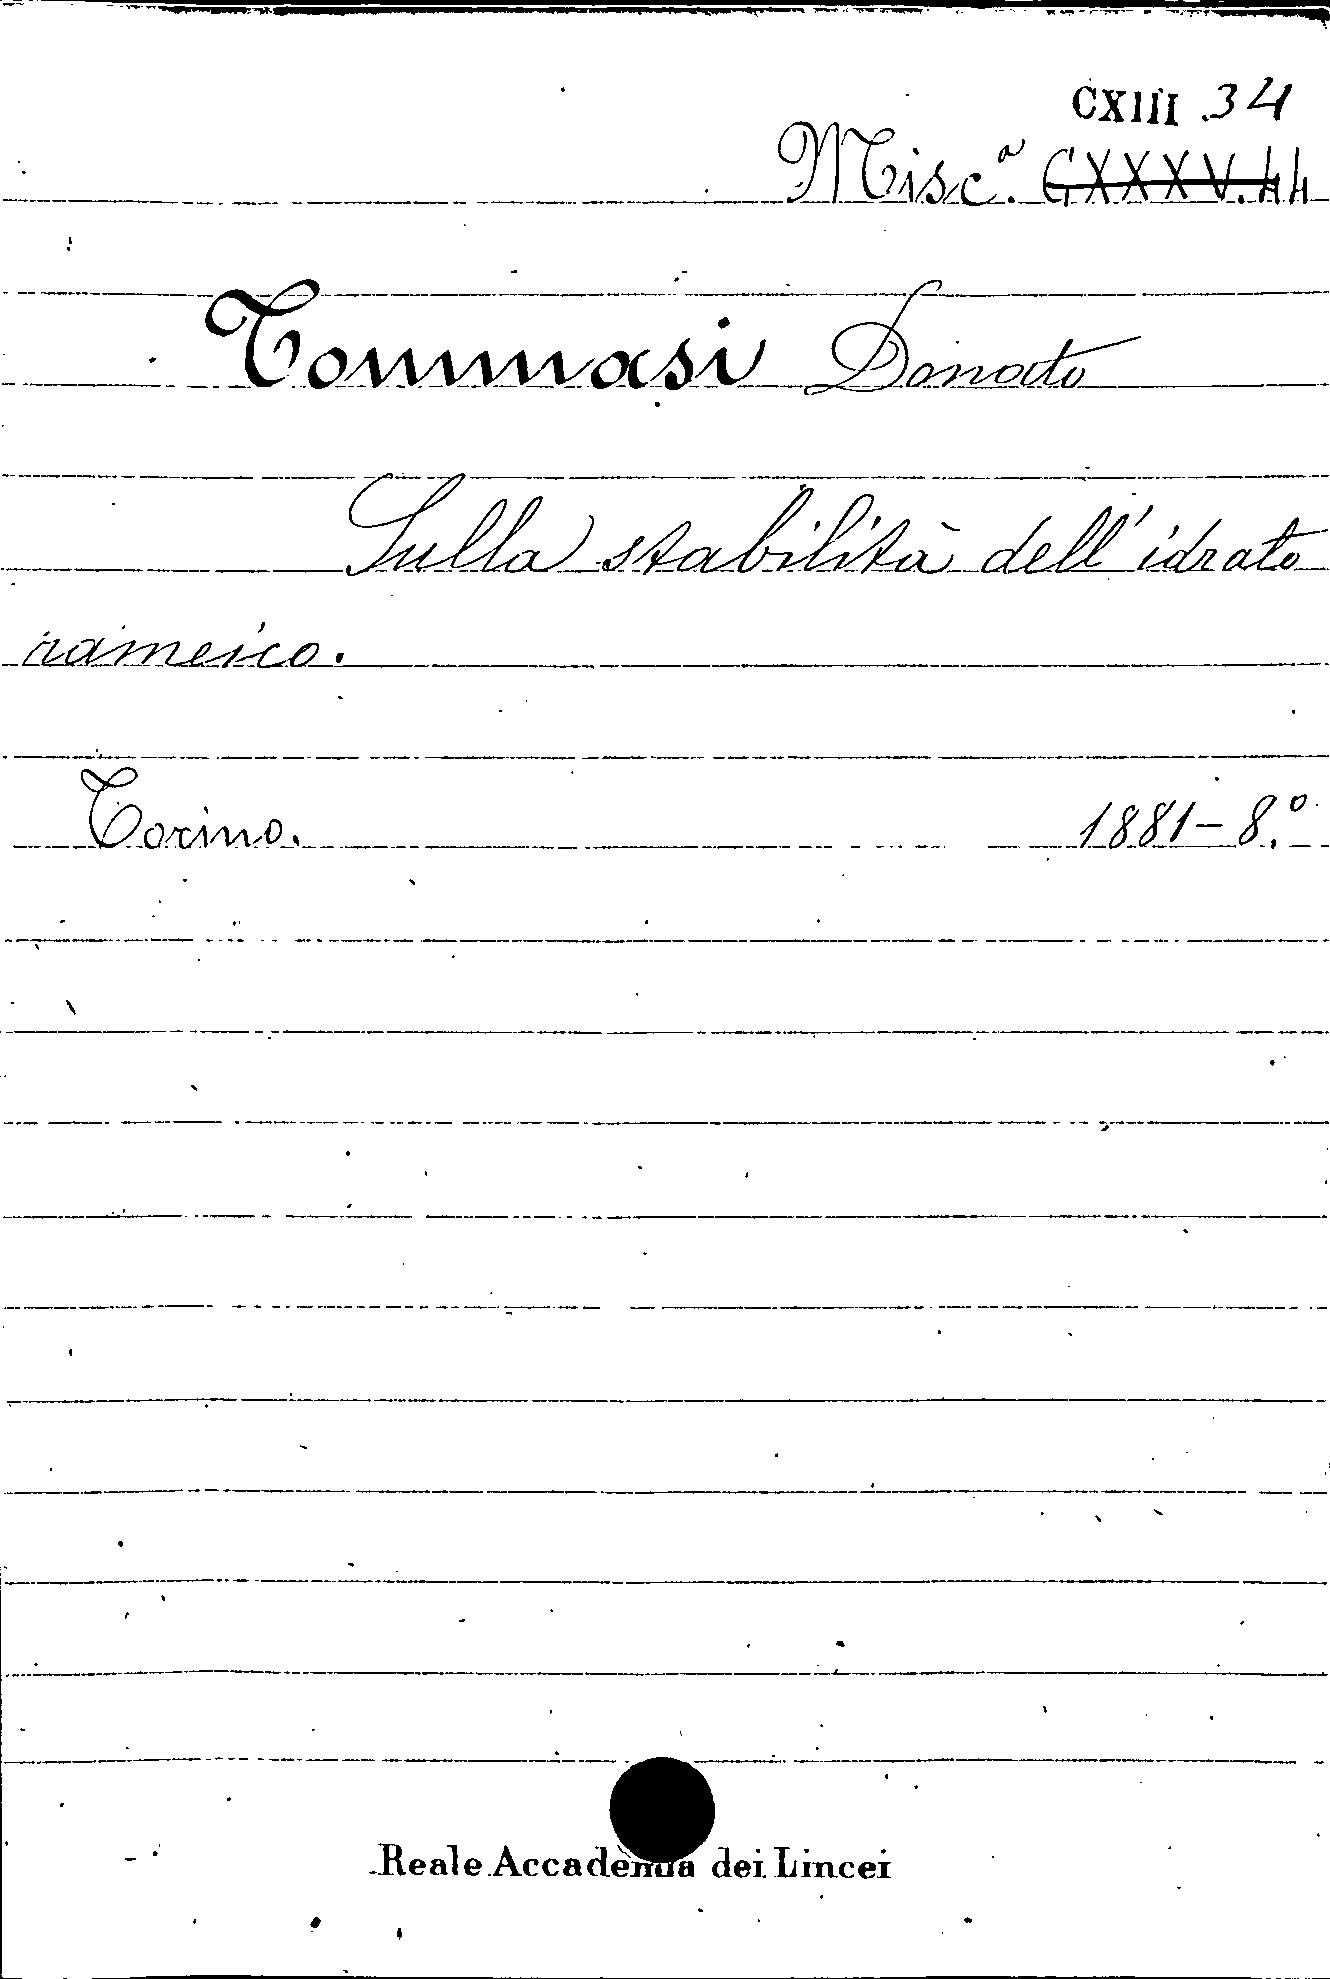 CXIII .34
Misc.ª CXXXV.44
Tommasi Donato
Sulla stabilità dell'idrato
rameico.
Torino. 1881-8.º
Reale Accademia dei Lincei